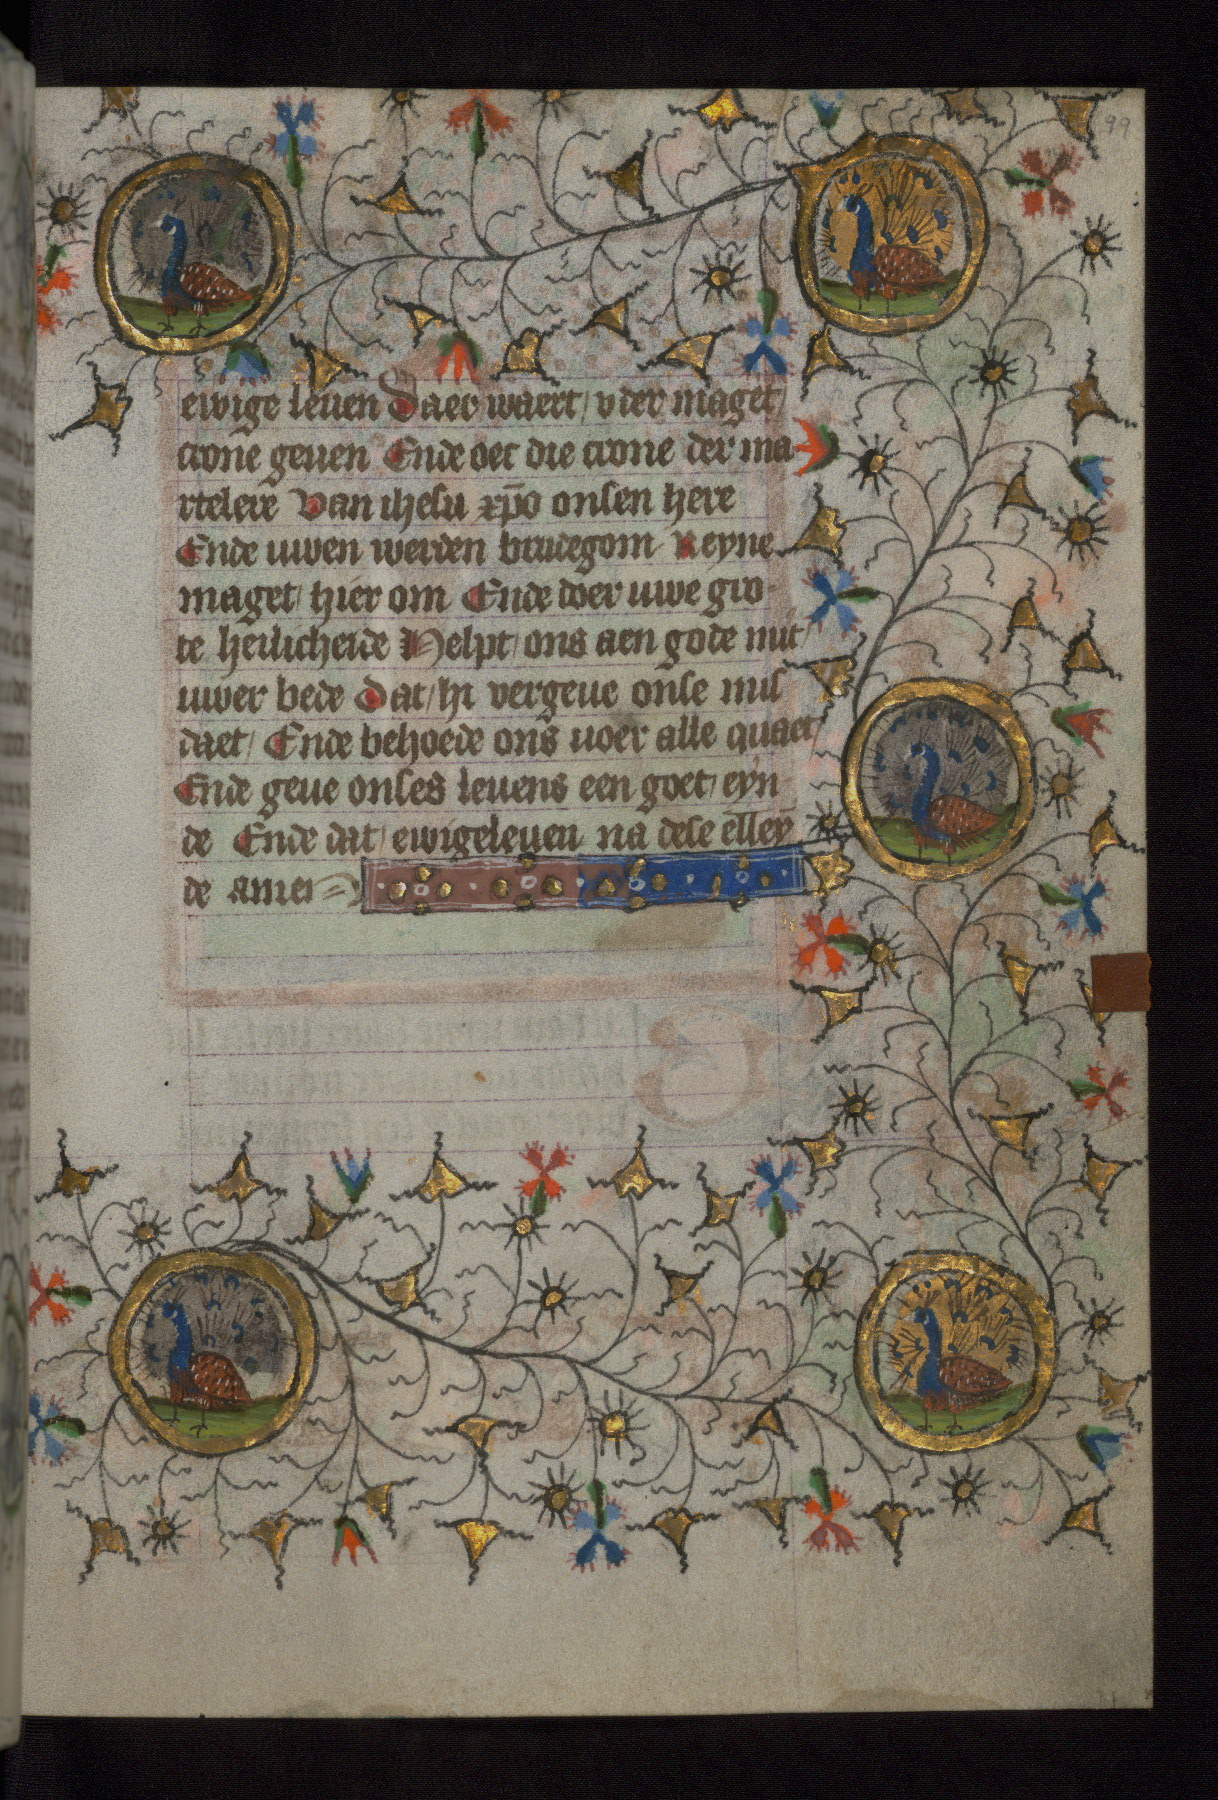 99
ewige leuen Daer waert v der maget
crone geuen Ende oec die crone der ma
rtelere Van ihesu xpo onsen here
Ende uwen werden brudegom Reyne
maget hier om Ende doer uwe gro-
te heilicheide Helpt ons aen gode mit
uwer bede Dat hi vergeue onse mis
daet Ende behoede ons uoer alle quaet
Ende geue onses leuens een goet eyn
de Ende dat ewige leuen na dese elleyn
de amen